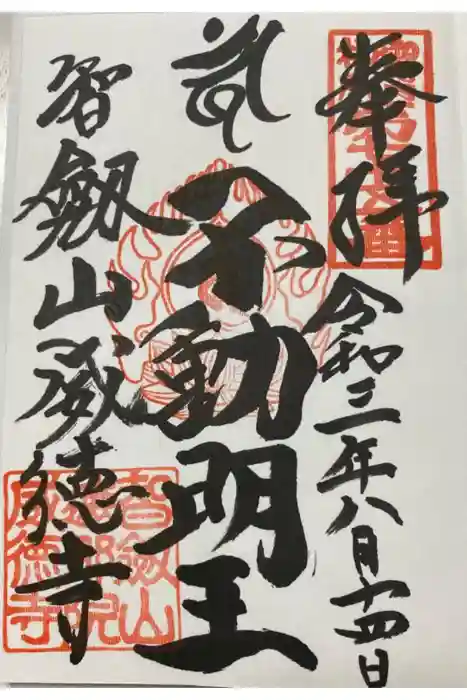 奉拝
令和三年八月十四日
不動明王
智劔山威徳寺
智劔山
威徳寺